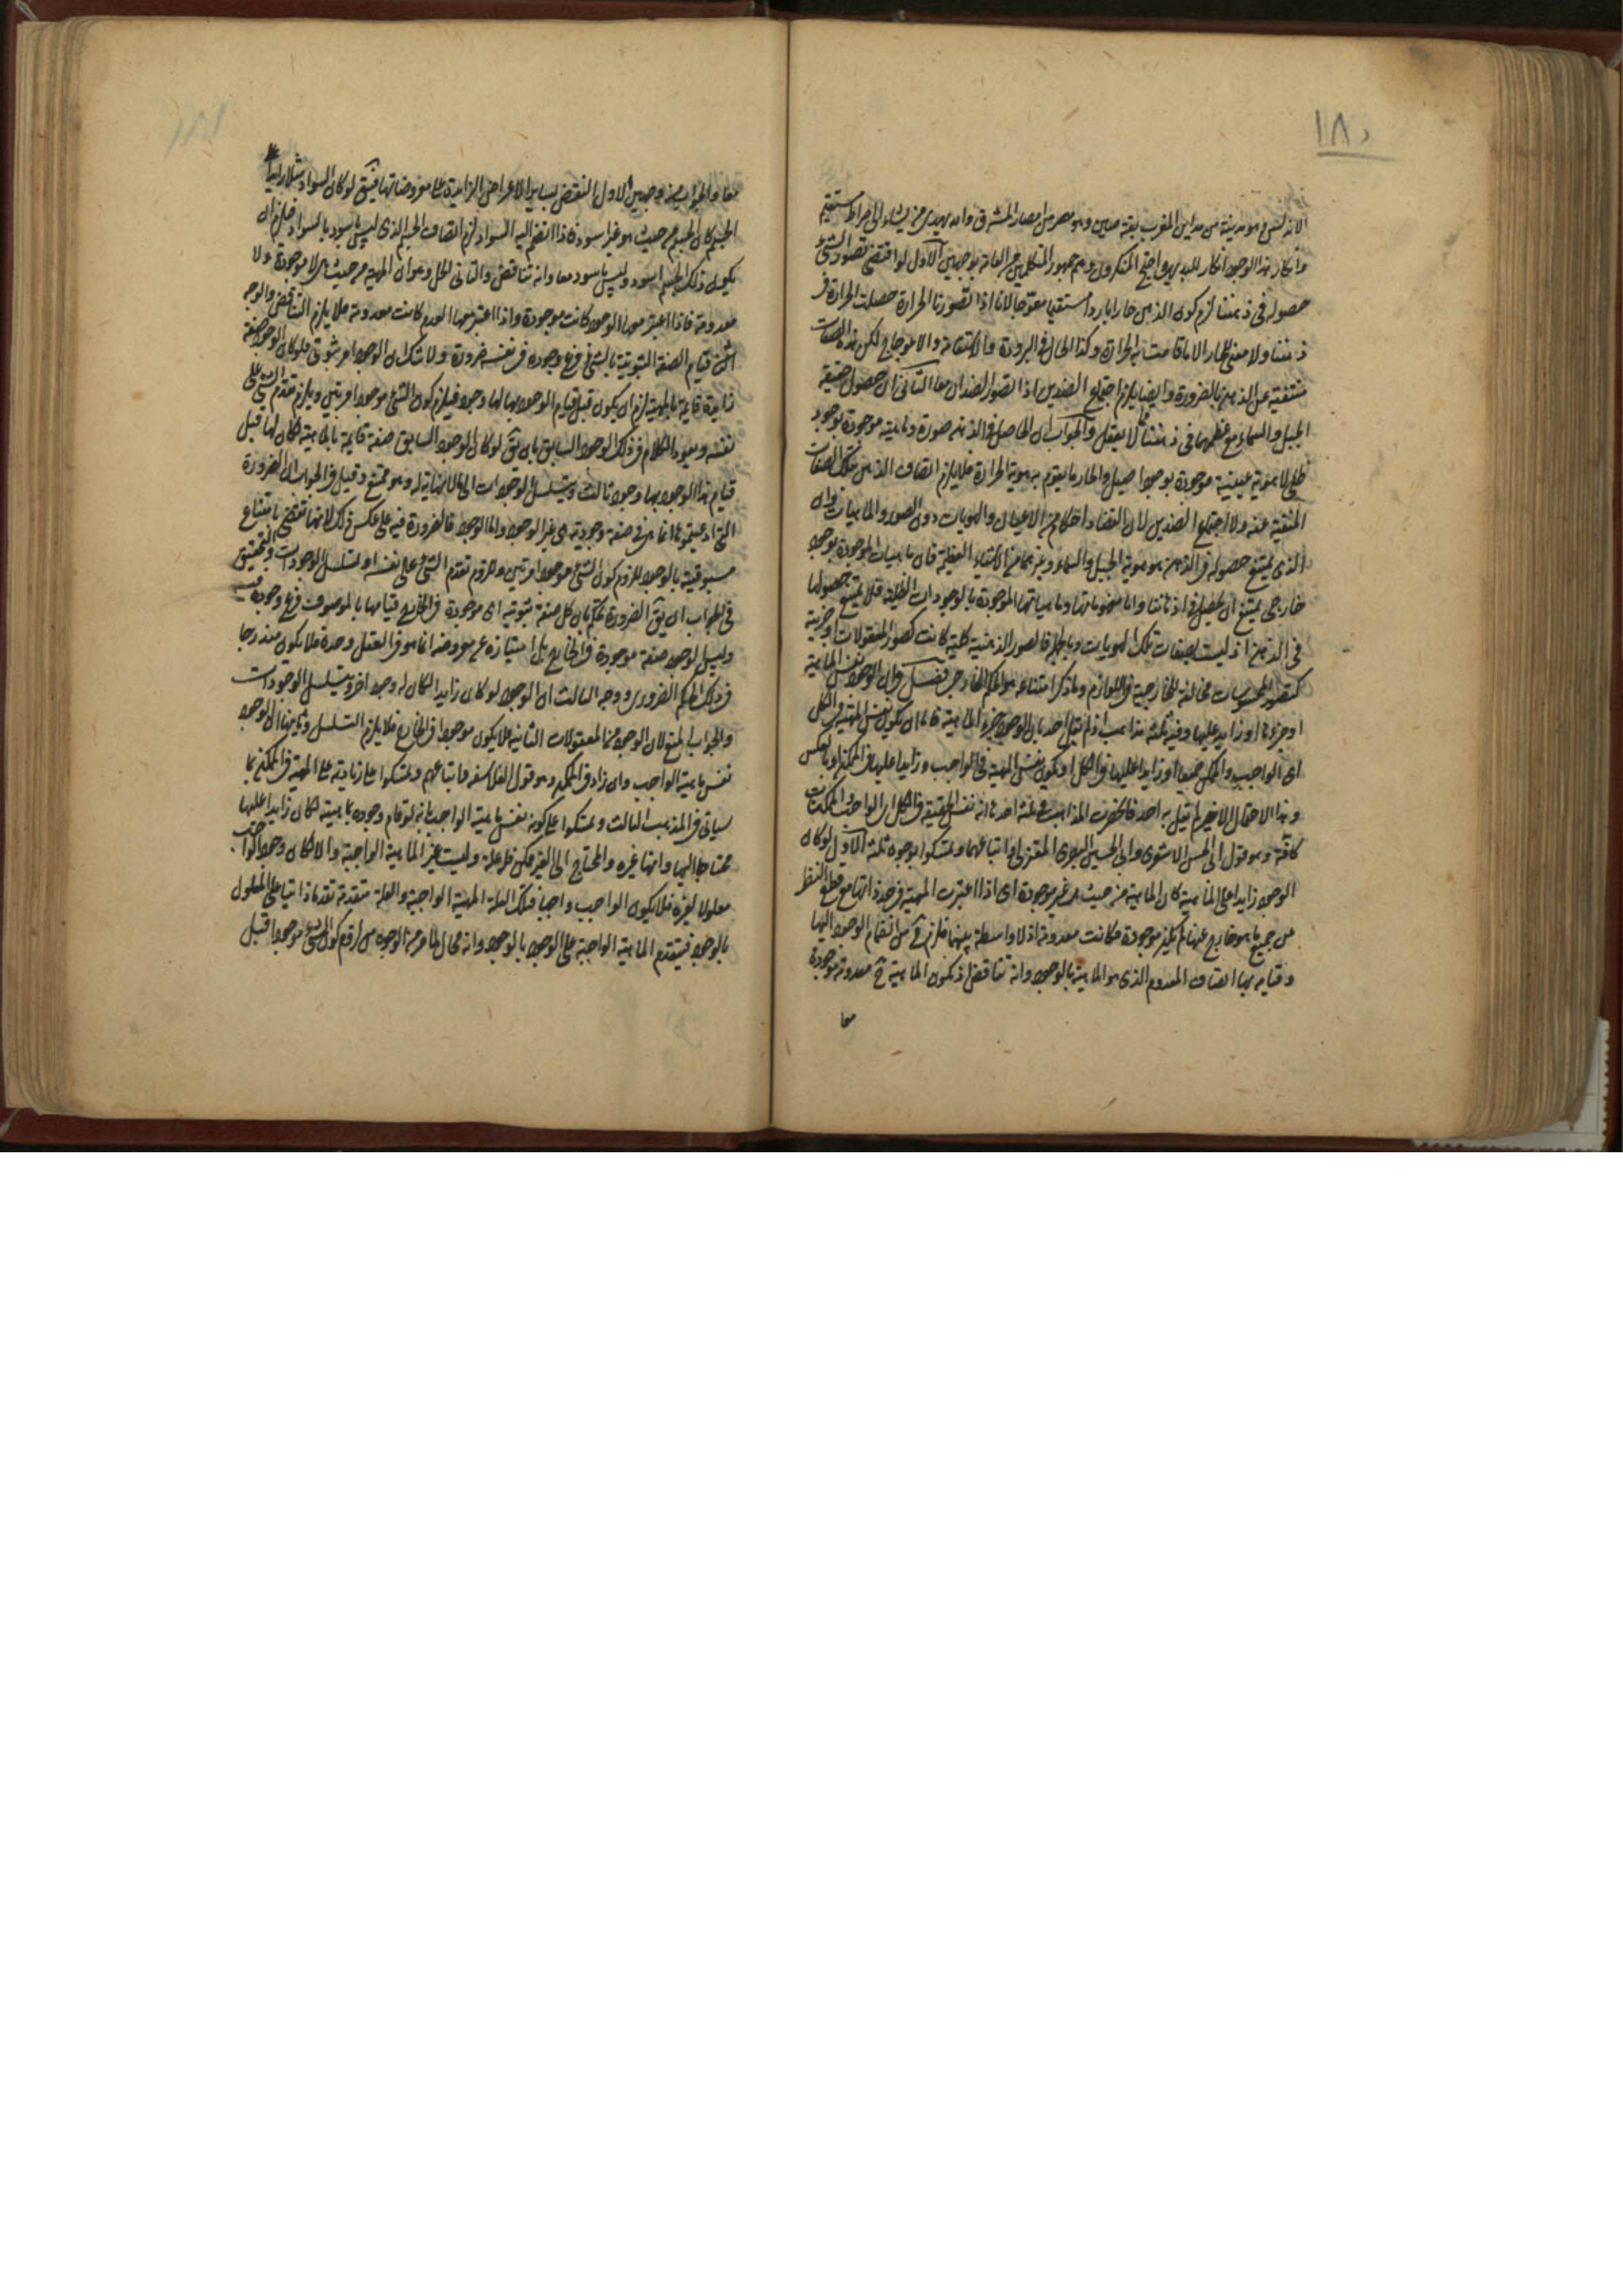 ١٨٥
الانه ليس هو مدينة من مداين المغرب بقية مدين وهو مصر من امصار المشرق والله يهدى من يشاء الى صراط مستقيم
وانكار هذا الوجود انكار للبديهى واحتج المنكرون وهم جمهور المتكلمين من العامة بوجهين الاول لو اقتضى تصور الشئ
حصوله فى ذهننا لزم كون الذهن حارا باردا مستقيما معوجا لانا اذا تصورنا الحرارة حصلت الحرارة فى
ذهننا ولا معنى للحار الا ما قامت به الحرارة وكذا الحال فى البرودة والاستقامة والاعوجاج لكن هذه الصفات
منتفية عن الذهن بالضرورة وايضا يلزم اجتماع الضدين اذا تصور الضدان معا الثانى ان حصول حقيقة
الجبل والسماء مع عظمهما فى ذهننا مما لا يعقل والجواب ان الحاصل فى الذهن صورة وماهية موجودة بوجود
ظلى لا هوية عينية موجودة بوجود اصيل والحار ما يقوم به هوية الحرارة فلا يلزم اتصاف الذهن بتلك الصفات
المنفية عنه ولا اجتماع الضدين لان التضاد احكام الاعيان والهويات دون الصور والماهيات وان
الذى يمتنع حصوله فى الذهن هو هوية الجبل والسماء وغيرهما من الاشياء العظيمة فان ماهيات الموجودة بوجود
خارجى يمتنع ان يحصل فى اذهاننا واما مفهوماتها وماهياتها الموجودة بالوجودات الظلية فلا يمتنع حصولها
فى الذهن اذ ليست بصفات تلك الهويات وبالجملة فالصور الذهنية كلية كانت كصور المعقولات او جزئية
كصور المحسوسات مخالفة للخارجية فى اللوازم وما ذكر امتناعه هو الحكم الخارجى فصل فى ان الوجود نفس الماهية
او جزؤها او زايد عليها وفيه ثلثة مذاهب اذ لم يقل احد بان الوجود جزء الماهية فاما ان يكون نفس المهية فى الكل
اى الواجب والممكن جميعا او زايدا عليها فى الكل او يكون نفس المهية فى الواجب وزايدا عليها فى الممكن او بالعكس
وهذا الاحتمال الاخير لم يقل به احد فانحصرت المذاهب فى ثلثة احدها انه نفس الحقيقة فى الكل اى الواجب والممكنات
كافة وهو قول ابى الحسن الاشعرى وابى الحسين البصرى المعتزلى واتباعهما وتمسكوا بوجوه ثلثة الاول لو كان
الوجود زايدا على الماهية كان الماهية من حيث هى غير موجودة اى اذا اعتبرت المهية فى حد ذاتها مع قطع النظر
عن جميع ما هو خارج عنها لم تكن موجودة فكانت معدومة اذ لا واسطة بينهما فلزم ح من انضمام الوجود اليها
وقيامه بها اتصاف المعدوم الذى هو الماهية بالوجود وانه تناقض اذ تكون الماهية ح معدومة موجودة
معا
١٨١
معا والجواب عنه من وجهين الاول النقض بساير الاعراض الزايدة على معروضاتها فيقال لو كان السواد مثلا زايدا
الجسم كان الجسم من حيث هو غير اسود فاذا انضم اليه السواد لزم اتصاف الجسم الذى ليس باسود بالسواد فلزم ان
يكون ذلك الجسم اسود وليس باسود معا وانه تناقض والثانى الحل وهو ان المهية من حيث هى لا موجودة ولا
معدومة فاذا اعتبر معها الوجود كانت موجودة واذا اعتبر معها العدم كانت معدومة فلا يلزم التناقض والوجه
الثانى قيام الصفة الثبوتية بالشئ فرع وجوده فى نفسه ضرورة ولا شك ان الوجود امر ثبوتى فلو كان الوجود صفة
زايدة قايمة بالمهية لزم ان يكون قبل قيام الوجود بها لها وجود فيلزم كون الشئ موجودا مرتين ويلزم تقدم الشئ على
نفسه ويعود الكلام فى ذلك الوجود السابق بان يق لو كان الوجود السابق صفة قايمة بالماهية لكان لها قبل
قيام هذا الوجود بها وجود ثالث ويتسلسل الوجودات الى ما لا نهاية له وهو ممتنع وقيل فى الجواب ان الضرورة
التى ادعيتموها انما هى فى صفة وجودية هى غير الوجود واما الوجود فالضرورة فيه على عكس ذلك لانها تقتضى بامتناع
مسبوقيته بالوجود للزوم كون الشئ موجودا مرتين وللزوم تقدم الشئ على نفسه او تسلسل الوجودات والتحقيق
فى الجواب ان يق الضرورة تحكم بان كل صفة ثبوتية اى موجودة فى الخارج قيامها بالموصوف فرع وجوده فيه
وليس الوجود صفة موجودة فى الخارج بل امتيازه عن معروضه انما هو فى العقل وحده فلا يكون مندرجا
فى ذلك الحكم الضرورى ووجه الثالث ان الوجود لو كان زايدا لكان له وجود اخر ويتسلسل الوجودات
والجواب المنع لان الوجود من المعقولات الثانية فلا يكون موجودا فى الخارج فلا يلزم التسلسل وثانيها ان الوجود
نفس ماهية الواجب وان زاد فى الممكن وهو قول الفلاسفة واتباعهم وتمسكوا على زيادته على المهية فى الممكن بما
سيأتى فى المذهب الثالث وتمسكوا على كونه نفس ماهية الواجب بانه لو قام وجوده بماهيته لكان زايدا عليها
محتاجا اليها وانها غيره والمحتاج الى الغير ممكن فله علة وليست غير الماهية الواجبة والا لكان وجود الواجب
معلولا لغيره فلا يكون الواجب واجبا فتلك العلة المهية الواجبة والعلة متقدمة تقدما ذاتيا على المعلول
بالوجود فيتقدم الماهية الواجبة على الوجود بالوجود وانه محال لما مر من الوجوه من لزوم كون الشئ موجودا قبل